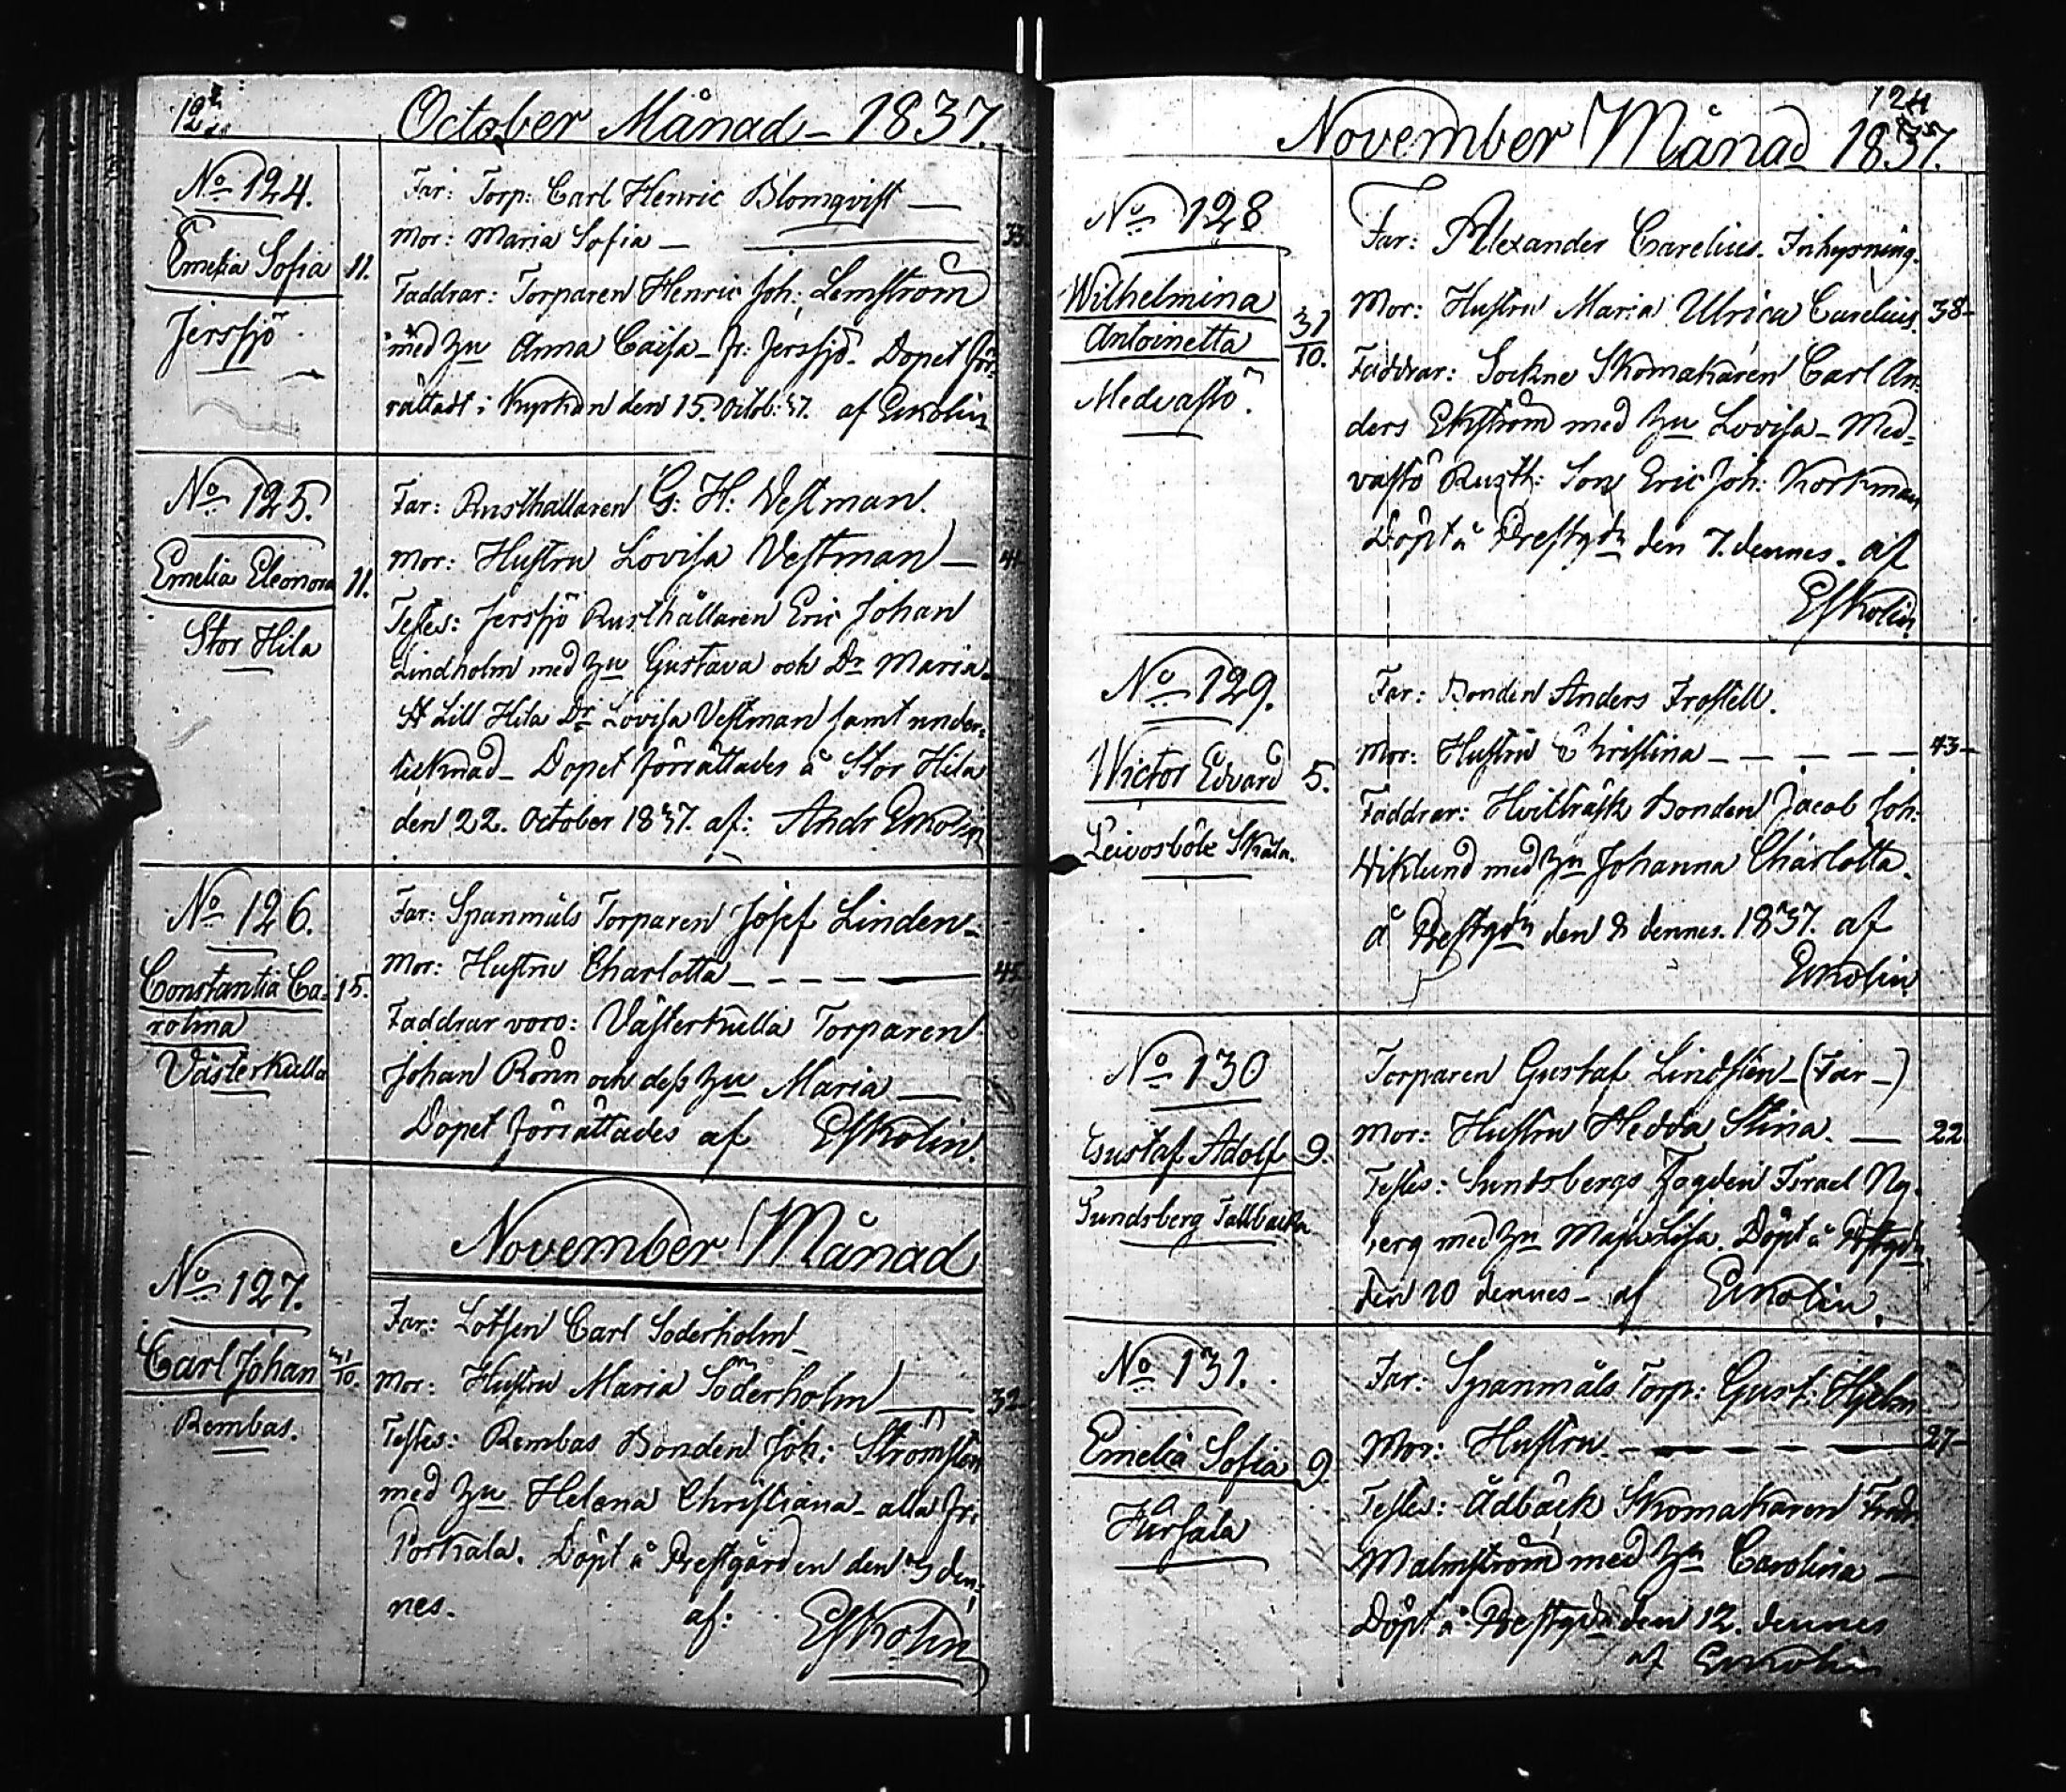 October Månad - 1837.
No 124.
Emelia Sofia 11.
Jersjö
Far: Torp: Carl Henric Blomqvist
Mor: Maria Sofia 33.
Faddrar: Torparen Henric Joh: Lemström
med Hu Anna Caisa - fr: Jersjö. Dopet för-
rättadt i Kyrkan den 15. Octob: 37. af Eskolin
No 125.
Emelia Eleonora 11.
Stor Hila
Far: Rusthållaren G: H: Vestman.
Mor: Hustru Lovisa Vestman
Testes: Jersjö Rusthållaren Eric Johan
Lindholm med Hu Gustava och Dr Maria.
Lill Hila Dr Lovisa Vestman samt under-
tecknad - Dopet förrättades å Stor Hila
den 22. October 1837. af: Andr Eskolin
No 126.
Constantia Ca- 15.
rolina
Västerkulla
Far: Spanmåls Torparen Josef Linden -
Mor: Hustru Charlotta 45
Faddrar voro: Västerkulla Torparen
Johan Rönn och dess Hu Maria
Dopet förrättades af Eskolin.
November Månad
No 127.
Carl Johan 31/10.
Rembas.
Far: Lotsen Carl Söderholm
Mor: Hustru Maria Söderholm 32
Testes: Rembas Bonden Joh: Strömsten
med Hu Helena Christiana - alla fr:
Porkala. Döpt å Prestgården den 5 den-
nes. af: Eskolin
124
November Månad 1837.
No 128
Wilhelmina
Antoinetta 31/10.
Medvastö.
Far: Alexander Carelius. Inhysning.
Mor: Hustru Maria Ulrica Carelius 38-
Faddrar: Sockne Skomakaren Carl An-
ders Ekström med Hu Lovisa - Med-
vastö Rusth: Son Eric Joh: Korkman
Döpt å Prestgdn den 7. dennes. af
Eskolin.
No 129.
Wictor Edvard 5.
Leivosböle Skata.
Far: Bonden Anders Frostell.
Mor: Hustru Christina - - - - 43-
Faddrar: Hvitträsk Bonden Jacob Joh:
Wiklund med Hu Johanna Charlotta.
å Prestgdn den 8 dennes. 1837. af
Eskolin
No 130
Gustaf Adolf 9.
Sundsberg Tallbacka
Torparen Gustaf Lindsten - (Far -)
Mor: Hustru Hedda Stina. 22
Testes: Sundsbergs Fogden Israel Ny-
berg med Hu Maja Lisa. Döpt å Prstgdn
den 10 dennes - af Eskolin.
No 131.
Emelia Sofia 9
Hirsala
Far: Spanmåls Torp: Gust: Hjelm.
Mor: Hustru - - - - 27-
Testes: Ådbäck Skomakaren Fredr
Malmström med Hu Carolina
Döpt å Prestgdn den 12. dennes
af Eskolin